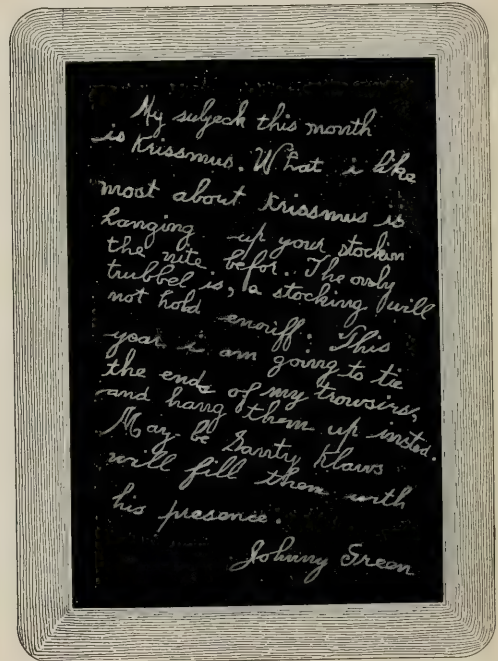 My subjeck this month
is Krissmus. What i like
most about Krissmus is
hanging up your stockin
the nite befor. The only
trubbel is, a stocking will
not hold enouff. This
year i am going to tie
the ends of my trowsirs,
and hang them up insted.
May be Santty Klaws
will fill them with
his presence.
Johnny Green